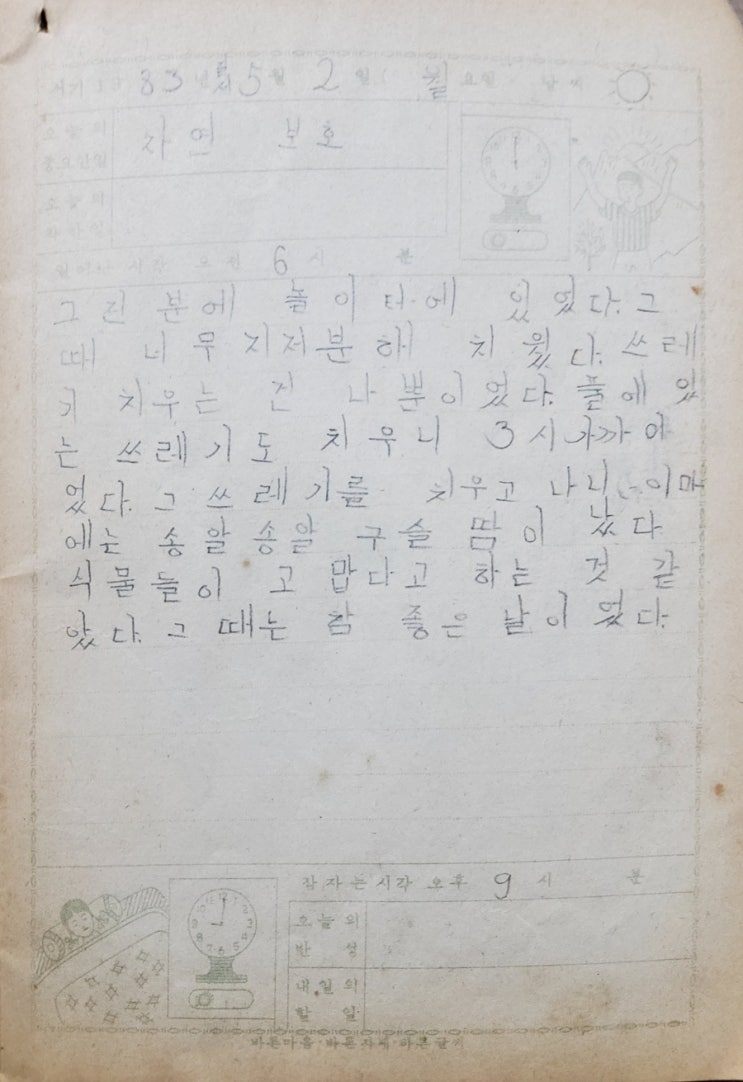 서기 19 83년 5월 2일( 월 요일 · 날씨
오늘의 중요한일
자연 보호
오늘의 착한일
일어난 시각 오전 6시 분
그린 분에 놀이터에 있었다. 그
때 너무 지저분해 치웠다. 쓰레
기 치우는 건 나뿐이었다. 풀에 있
는 쓰레기도 치우니 3시가까이
었다. 그 쓰레기를 치우고 나니 이마
에는 송알송알 구슬 땀이 났다
식물늘이 고맙다고 하는 것 같
았다. 그 때는 참 좋은 날이 었다.
잠자는시각 오후 9시 분
오늘의 반성
내일의 할일
바른마음·바른자세·바른글씨